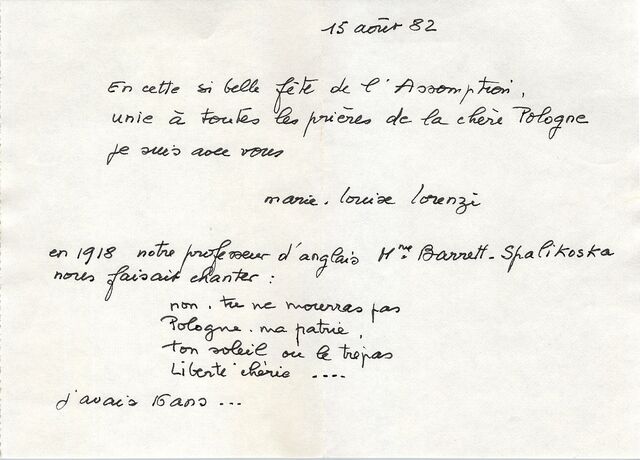 15 août 82
En cette si belle fête de l'Assomption,
unie à toutes les prières de la chère Pologne
je suis avec vous
marie. louise lorenzi
en 1918 notre professeur d'anglais Mme Barrett-Spalikoska
nous faisait chanter :
non. tu ne mourras pas
Pologne. ma patrie,
ton soleil ou le trépas
Liberté chérie ....
j'avais 16 ans ...